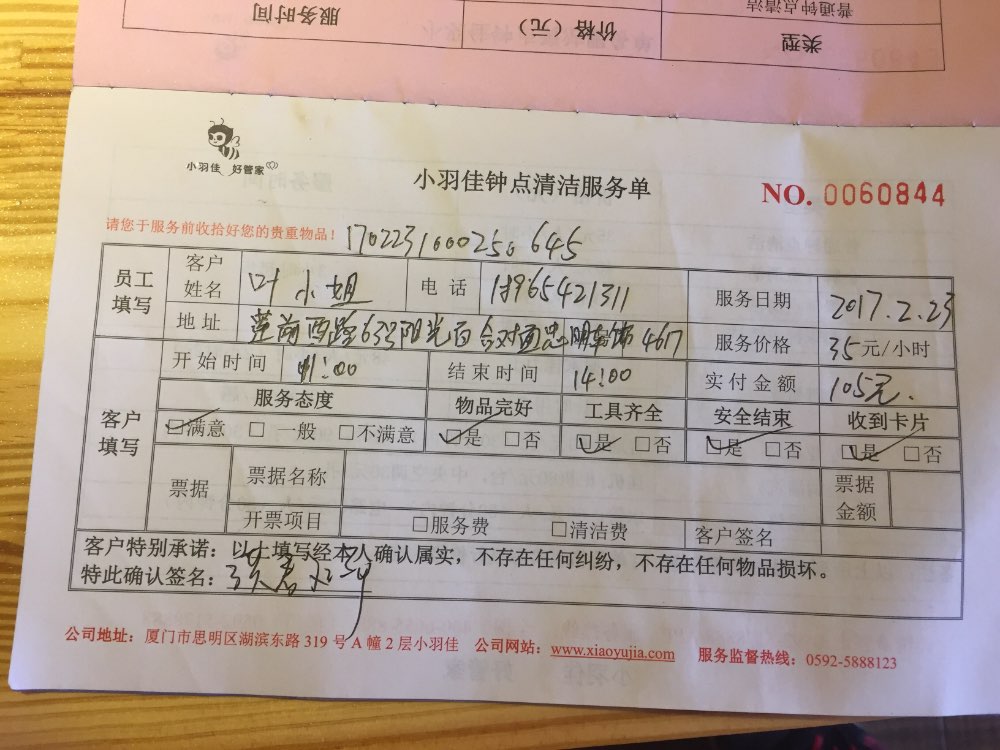 服务时间 价格（元） 类型
普通钟点清洁
小羽佳 好管家
小羽佳钟点清洁服务单
NO. 0060844
请您于服务前收拾好您的贵重物品！ 170223100025 645
员工填写 客户姓名 叶小姐 电话 18965421311 服务日期 2017.2.23
地址 莲前西路633阳光百合对面忠明车饰 4617 服务价格 35元/小时
开始时间 11:00 结束时间 14:00 实付金额 105元.
客户填写 服务态度 物品完好 工具齐全 安全结束 收到卡片
☑满意 □一般 □不满意 ☑是 □否 ☑是 □否 ☑是 □否 ☑是 □否
票据 票据名称 票据金额
开票项目 □服务费 □清洁费 客户签名
客户特别承诺：以上填写经本人确认属实，不存在任何纠纷，不存在任何物品损坏。
特此确认签名：
公司地址：厦门市思明区湖滨东路 319 号 A 幢 2 层小羽佳 公司网站：www.xiaoyujia.com 服务监督热线：0592-5888123